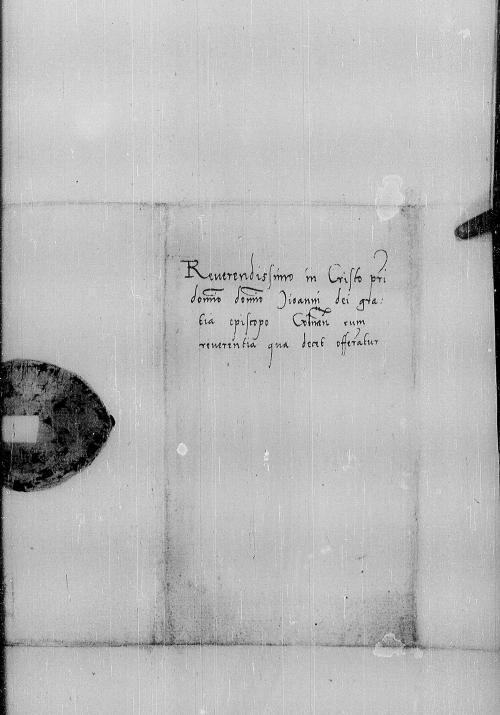 Reverendissimo in Cristo pri
domno domno Jioanni dei gra:
tia episcopo Colman cum
reverentia qua decet offeratur